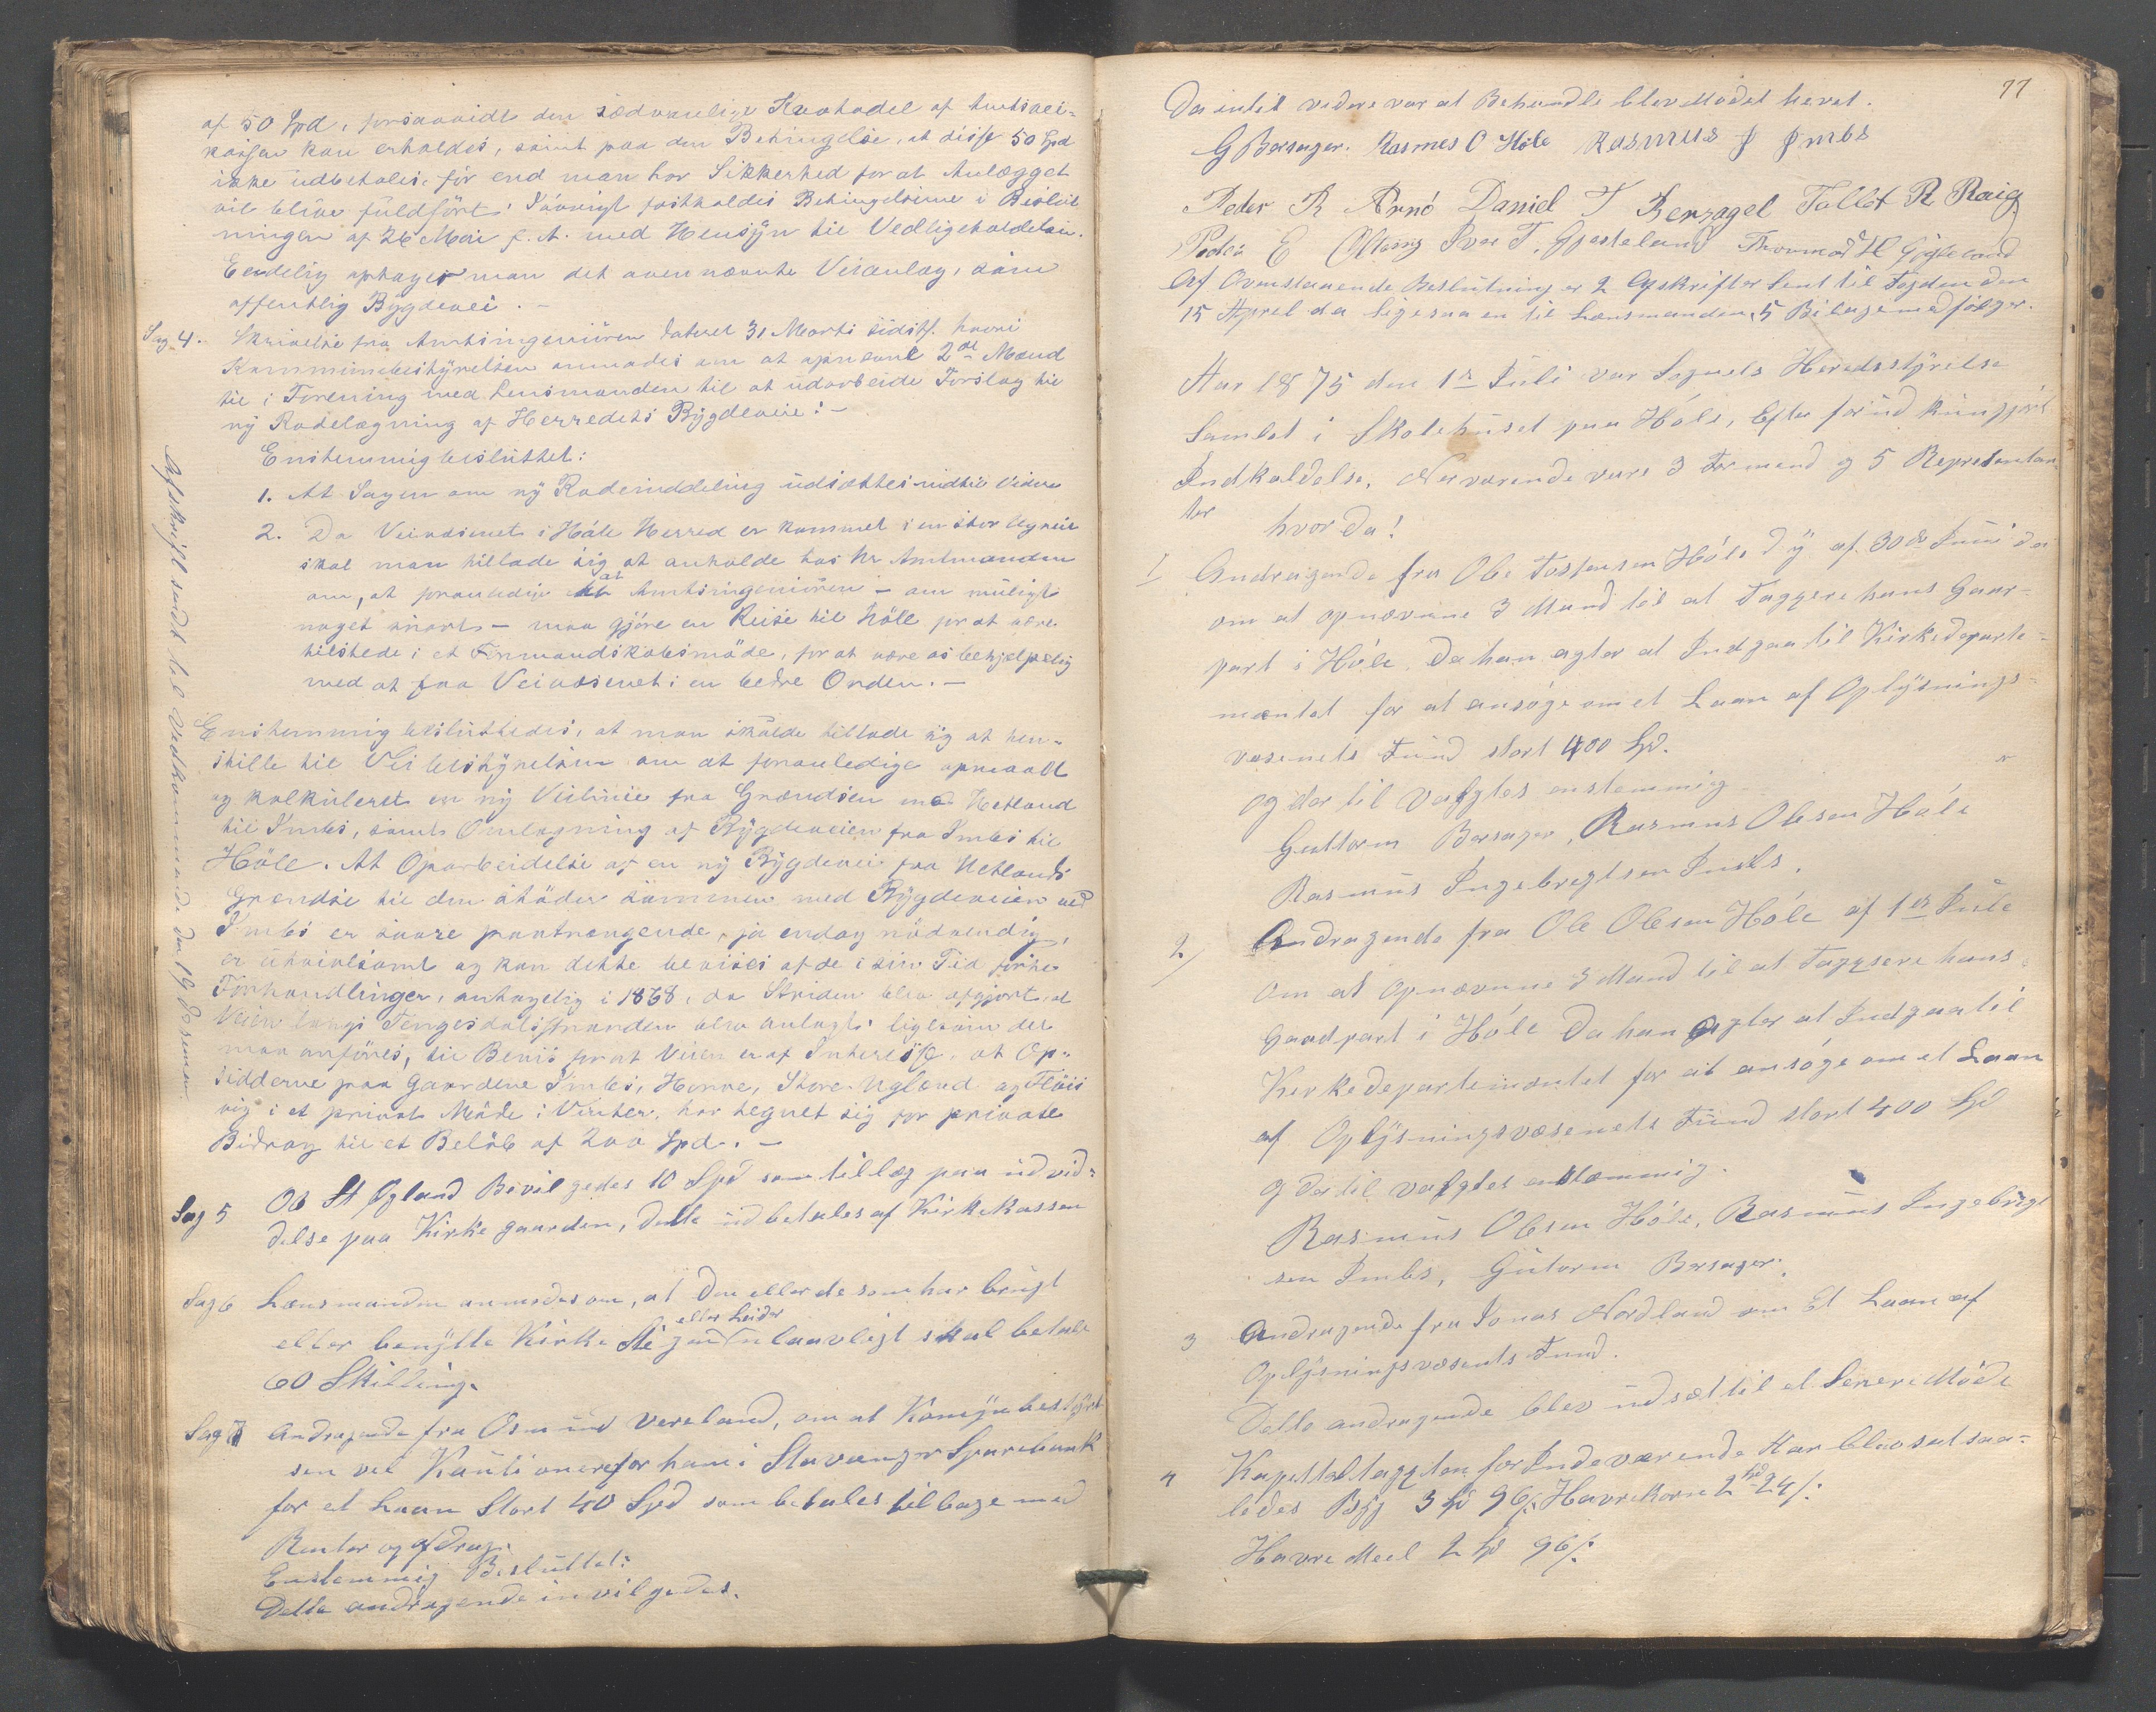 af 50 Spd, forsaavidt den sædvanlige Kvotadel af Amtsvei-
kassen kan erholdes, samt paa den Betingelse, at disse 50 Spd
ikke udbetales, før end man har Sikkerhed for at Anlægget
vil blive fuldført. Iøvrigt fastholdes Betingelserne i Beslut
ningen af 26 Mai f. A. med Hensyn til Vedligeholdelsen.
Eendelig optager man det ovennævnte Veianlæg, som
offentlig Bygdevei. –
Sag 4. Skrivelse fra Amtsingeniøren dateret 31 Marts sidstl. hvori
Kommunebestyrelsen anmodes om at opnevne 2de Mænd
til i Forening med Lensmanden til at udarbeide Forslag til
ny Rodelægning af Herredets Bygdeveie: –
Enstemmig besluttet:
1. At Sagen om ny Rodeinddeling udsættes indtil Videre
2. Da Veivæsenet i Høle Herred er kommet i en stor
skal man tillade sig at anholde hos Hr Amtmanden
om, at foranledige at Amtsingeniøren – om muligt
noget snart – maa gjøre en Reise til Høle for at være
tilstede i et Formandskabsmøde, for at være os behjelpelig
med at faa Veivæsenet i en bedre Orden. –
Enstemmig besluttedes, at man skulde tillade sig at hen-
stille til Veibestyrelsen om at foranledige opmaalt
og kalkuleret en ny Veilinie fra Grændsen med Hetland
til Imbs, samt Omlægning af Bygdeveien fra Imbs til
Høle. At Oparbeidelse af en ny Bygdevei fra Hetlands
Grændse til den støder sammen med Bygdeveien ved
Imbs er saare paatrængende, ja endog nødvendig,
er utvivlsomt og kan dette bevises af de i sin Tid førte
Forhandlinger, antagelig i 1868, da Striden blev afgjort, at
Veien langs Tengesdalsstranden blev anlagt ligesom det
maa anføres, til Beviis for at Veien er af Interesse, at Op-
sidderne paa Gaardene Imbs, Horve, Store-Ugland og Fløis
vig i et privat Møde i Vinter, har tegnet sig for private
Bidrag til et Beløb af 200 Spd. –
Sag 5 Ole St Øgland Bevilgedes 10 Spd som tillæg paa udvid-
delse paa Kirkegaarden, dette udbetales af Kirkekassen
Sag 6 Lensmanden anmodes om, at den eller de som har brugt
eller Leider
eller benytte Kirke Stigen ulaavligt skal betale
60 Skilling.
Sag 7 Andragende fra Osmund Vereland, om at Komynbestyrel
sen vil Kautionere for ham i Stavanger Sparebank
for et Laan Stort 40 Spd som betales tilbage med
Renter og afdrag.
Enstemmig Besluttet:
Dette andragende invilgedes.
Afskrift sendt til Vedkommende den 19 Desember
77
Da intet videre var at Behandle blev Mødet hevet.
G Bersager. Rasmes O Høle Rasmus I Imbs
Peder R Arnø Daniel T Bersagel Tollef R Raig
Peder E Oltesvig Ivar T. Gjesteland Thormod H Gjesteland
Af Ovenstaaende Beslutning er 2 Afskrifter sent til Fogden den
15 April da ligesaa en til Lensmanden, 5 Bilage medfølger.
Aar 1875 den 1ste Juli var Sognets Heredsstyrelse
Samlet i Skolehuset paa Høle, Efter forud kungjort
Indkaldelse, Nerværende vare 3 Formend og 5 Representan
ter hvor da!
I Andragende fra Ole Tostensen Høle D Y af 30de Juni da
om at opnævnne 3 Mand til at Taggere hans Gaar-
part i Høle, Da han agter at Indgaa til Kirkedeparte-
mæntet for at ansøge om et Laan af Oplysnings-
væsenets Fund stort 400 Spd.
og der til Valgtes enstemmig
Guttorm Bersager, Rasmus Olesen Høle
Rasmus Ingebregtsen Imbs.
2/ Andragende fra Ole Olesen Høle af 1ste Juli
Om at Opnævnne 3 Mand til at Taggsere hans
Gaadpart i Høle Da han Agter at Indgaa til
Kirkedepartemæntet for at ansøge om et Laan
af Oplysningsvæsenets Fund stort 400 Spd
og der til valgtes enstæmmig.
Rasmus Olesen Høle, Rasmus Ingebrigt
sen Imbs, Gutorm Bersager.
3 Andragende fra Jonas Nordland om Et Laan af
Oplysningsvæsents Fund.
Dette andragende blev udsat til et Senere Møde
4 Kapittelstagxten for Indeværende Aar blev sat saa-
ledes Byg 3 Spd 96 s: Havrekorn 2 Spd 24 s:
Havre Meel 2 Spd 96 s: